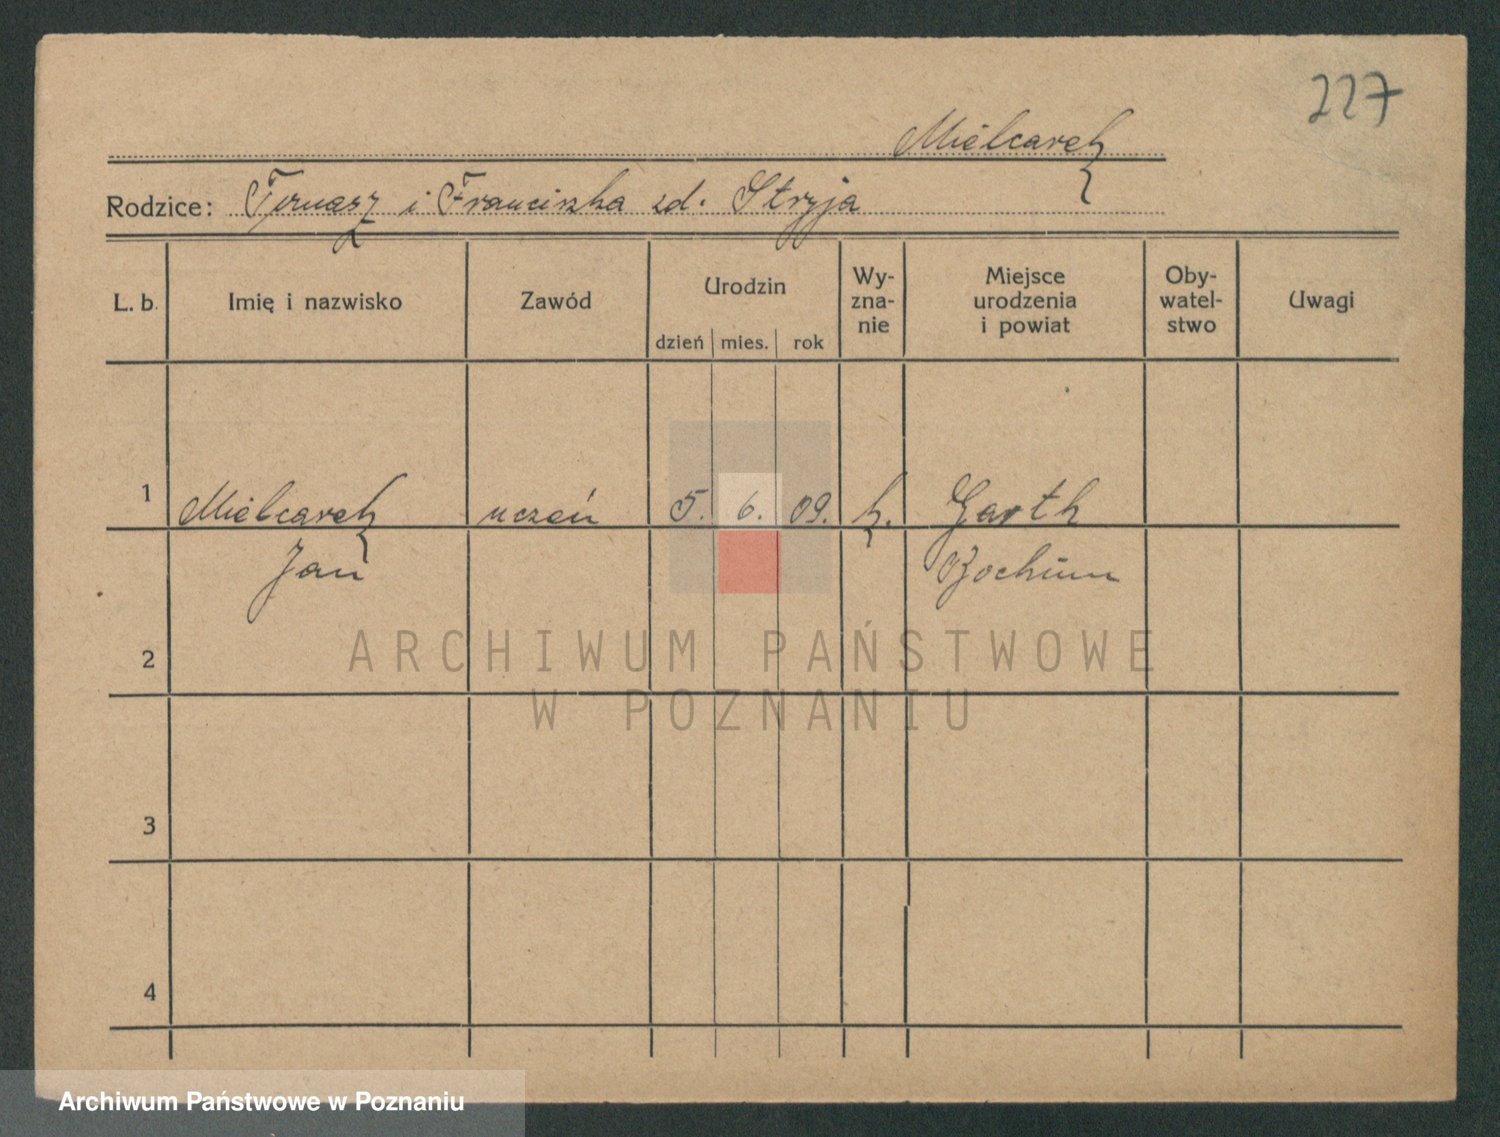 227
Mielcarek
Rodzice: Tomasz i Franciszka zd. Stryja
L. b. Imię i nazwisko Zawód Urodzin Wy-zna-nie Miejsce urodzenia i powiat Oby-watel-stwo Uwagi
dzień mies. rok
1 Mielcarek uczeń 5. 6. 09. k. Garth
Jan Bochum
2
ARCHIWUM PAŃSTWOWE
W POZNANIU
3
4
Archiwum Państwowe w Poznaniu